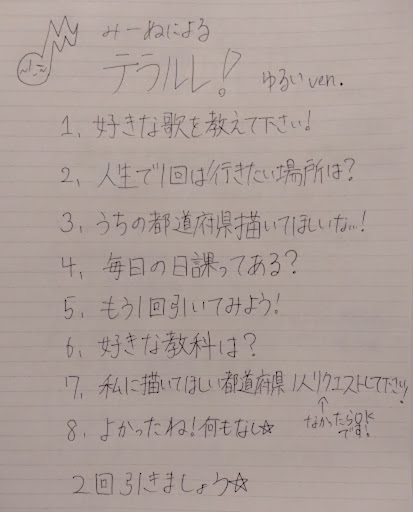 みーねによる
テラルレ! ゆるいven.
1、好きな歌を教えて下さい!
2、人生で1回は行きたい場所は?
3、うちの都道府県描いてほしいな…!
4、毎日の日課ってある?
5、もう1回引いてみよう!
6、好きな教科は?
7、私に描いてほしい都道府県1人リクエストして下さい!
↑
なかったらOK
です!
8、よかったね!何もなし☆
2回引きましょう☆